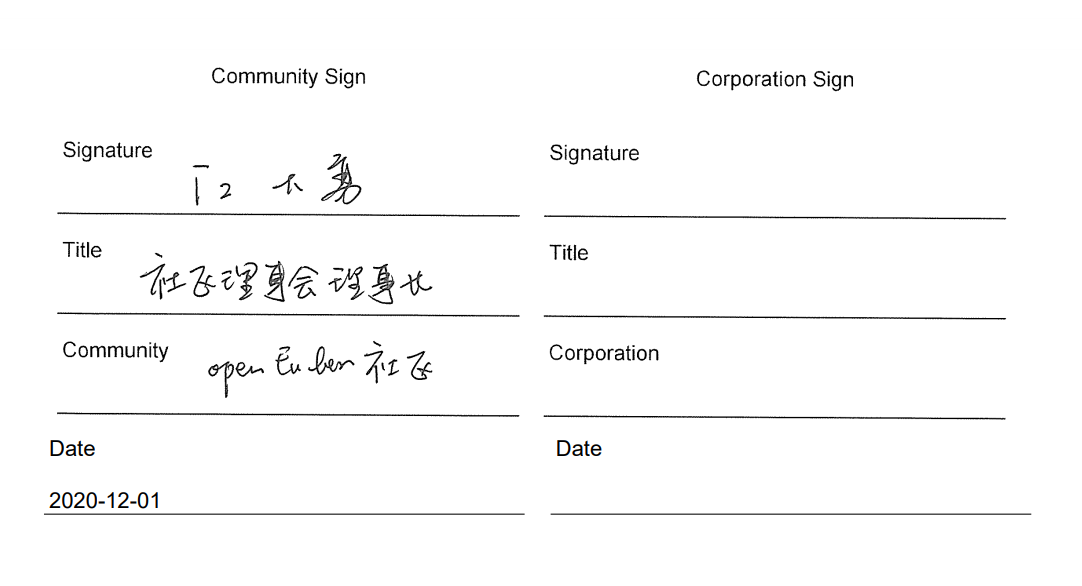 Community Sign
Signature
Title
社区理事会理事长
Community
openEuler 社区
Date
2020-12-01
Corporation Sign
Signature
Title
Corporation
Date